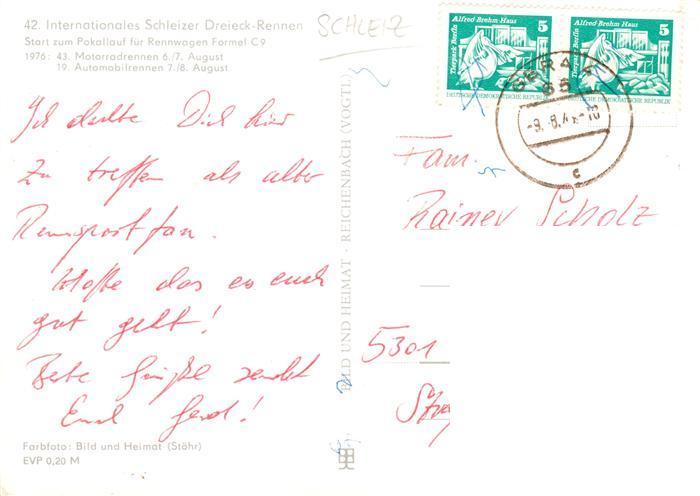 42. Internationales Schleizer Dreieck-Rennen
Start zum Pokallauf für Rennwagen Formel C9
1976: 43. Motorradrennen 6./7. August
19. Automobilrennen 7./8. August
SCHLEIZ
Ich dachte Dich hier
zu treffen als alter
Rennsportfan.
Hoffe das es euch
gut geht!
Beste Grüße sendet
Euch Gerd!
Farbfoto: Bild und Heimat (Stöhr)
EVP 0,20 M
BILD UND HEIMAT · REICHENBACH (VOGTL)
Alfred-Brehm-Haus 5
Tierpark Berlin
DEUTSCHE DEMOKRATISCHE REPUBLIK
Alfred-Brehm-Haus 5
Tierpark Berlin
DEUTSCHE DEMOKRATISCHE REPUBLIK
GERA
65
c
Fam.
Rainer Scholz
5301